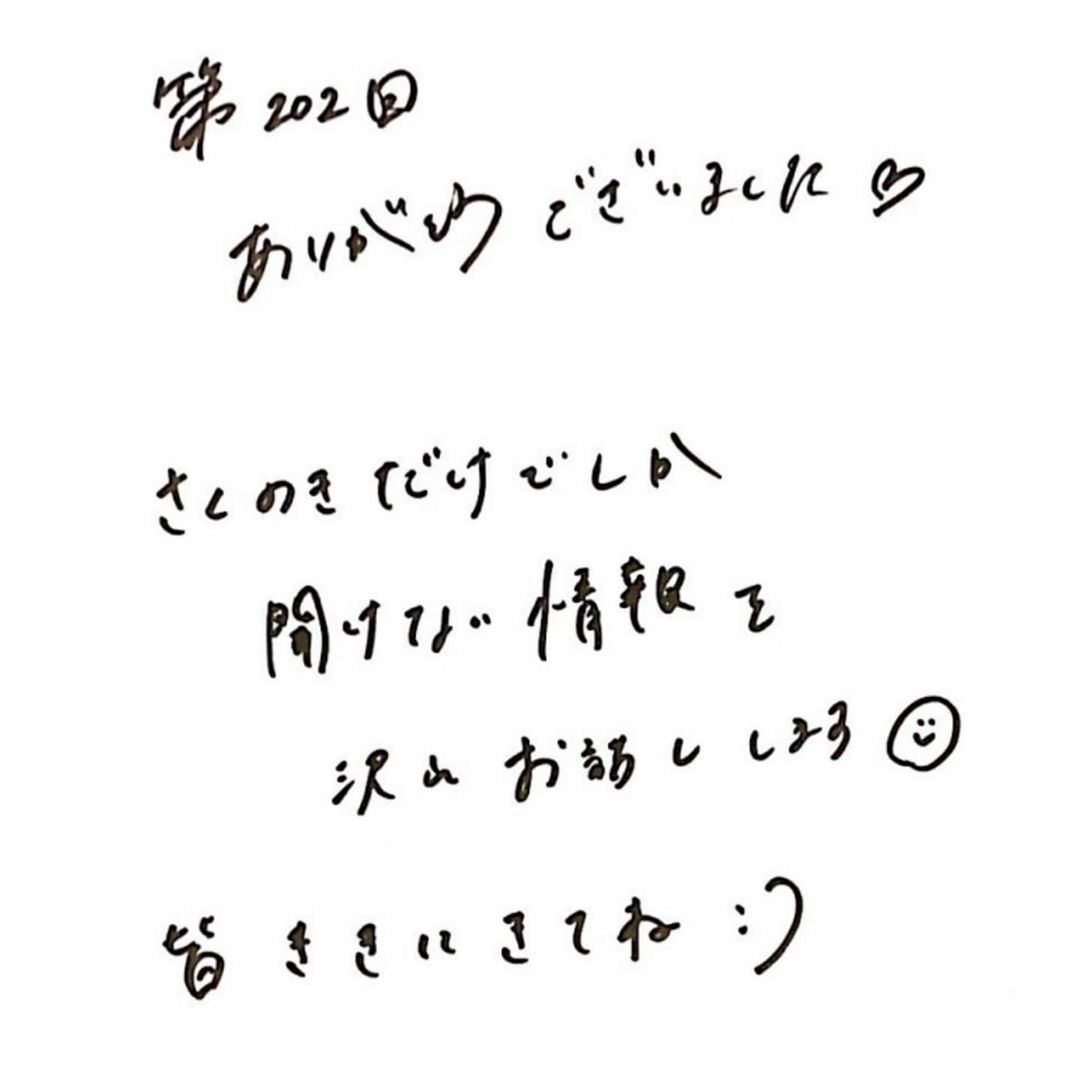 第202回
ありがとうございました♡
さくのきだけでしか
聞けない情報を
沢山お話しします☺
皆ききにきてね :)